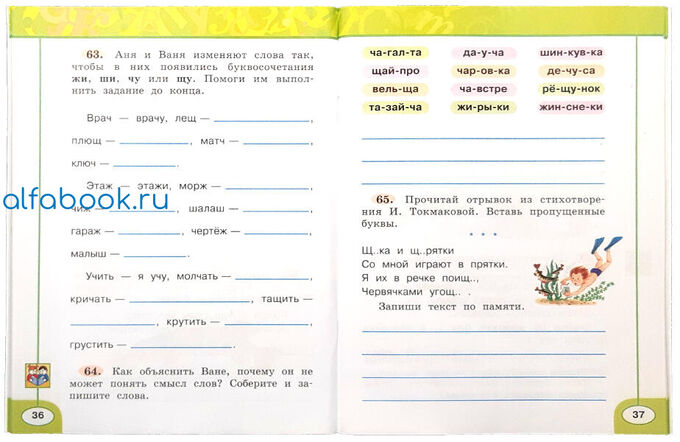 63. Аня и Ваня изменяют слова так,
чтобы в них появились буквосочетания
жи, ши, чу или щу. Помоги им выпол-
нить задание до конца.
Врач — врачу, лещ — ,
плющ — , матч — ,
ключ — .
Этаж — этажи, морж — ,
чиж — , шалаш — ,
гараж — , чертёж — ,
малыш — .
Учить — я учу, молчать — ,
кричать — , тащить —
, крутить — ,
грустить — .
64. Как объяснить Ване, почему он не
может понять смысл слов? Соберите и за-
пишите слова.
36
alfabook.ru
ча-гал-та да-у-ча шин-кув-ка
щай-про чар-ов-ка де-чу-са
вель-ща ча-встре рё-щу-нок
та-зай-ча жи-ры-ки жин-сне-ки
65. Прочитай отрывок из стихотворе-
ния И. Токмаковой. Вставь пропущенные
буквы.
* * *
Щ..ка и щ..рятки
Со мной играют в прятки.
Я их в речке поищ..,
Червячками угощ.. .
Запиши текст по памяти.
37